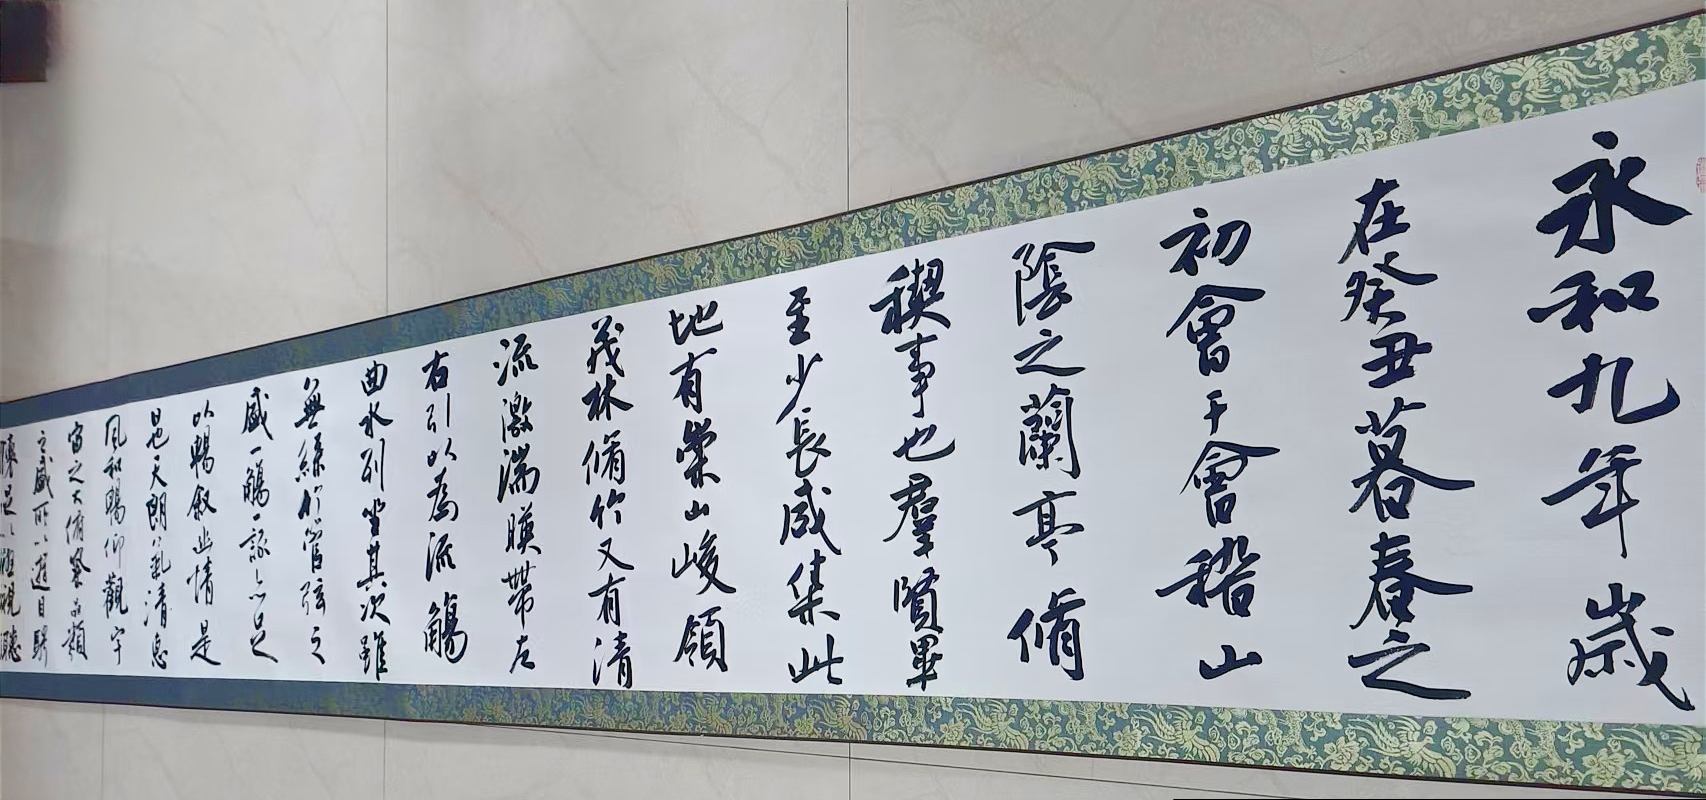 永和九年歲
在癸丑暮春之
初會于會稽山
陰之蘭亭脩
稧事也羣賢畢
至少長咸集此
地有崇山峻領
茂林脩竹又有清
流激湍暎帶左
右引以為流觴
曲水列坐其次雖
無絲竹管弦之
盛一觴一詠亦足
以暢敘幽情是
日也天朗氣清惠
風和暢仰觀宇
宙之大俯察品類
之盛所以遊目騁
懷足以極視聽